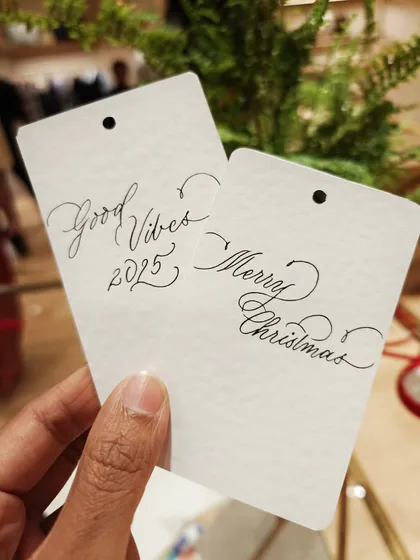 Good
Vibes
2025
Merry
Christmas